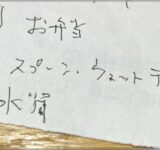 お弁当
スプーン・ウェットテ
水筒